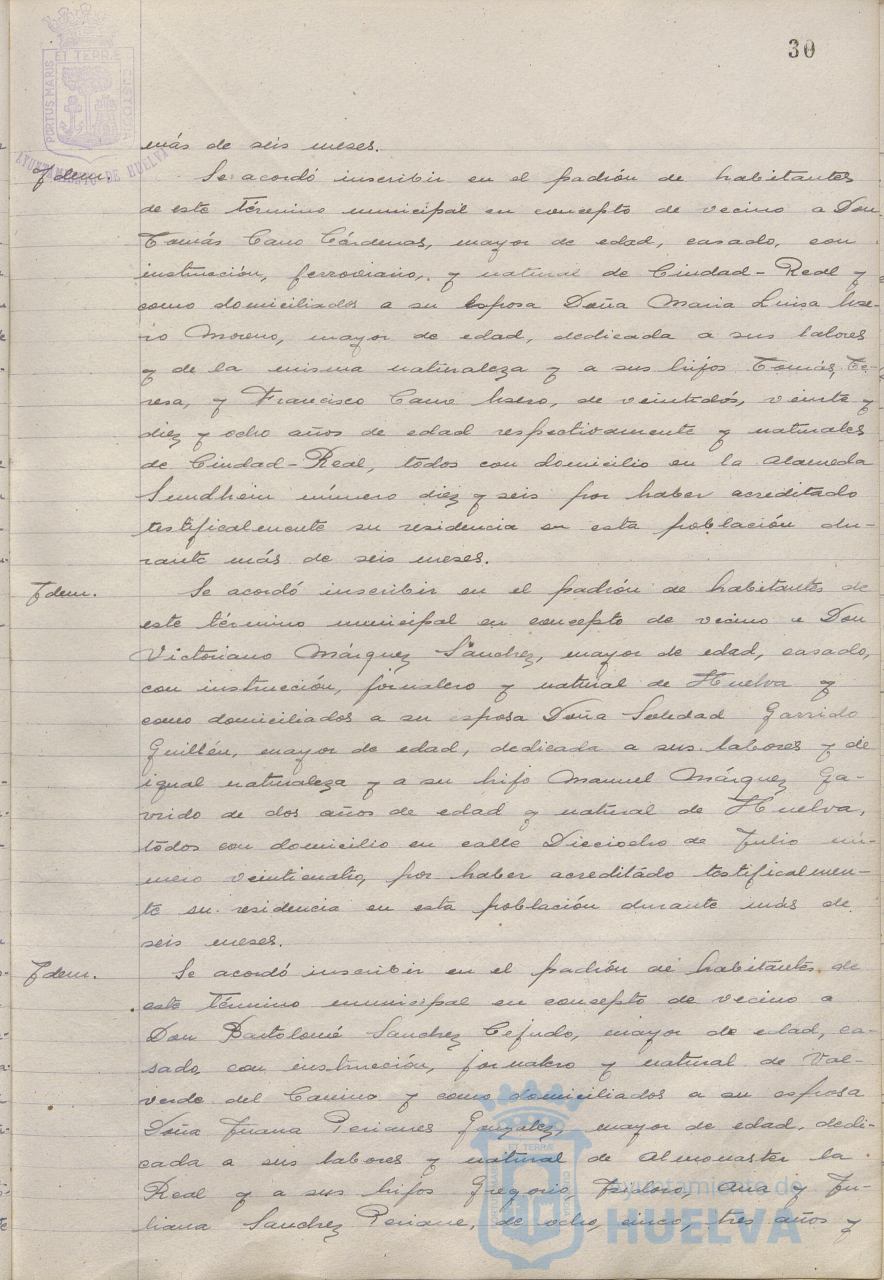 30
PORTUS MARIS ET TERRÆ CUSTODIA
AYUNTAMIENTO DE HUELVA
más de seis meses.
Idem. Se acordó inscribir en el padrón de habitantes
de este término municipal en concepto de vecino a Don
Tomás Cano Cárdenas, mayor de edad, casado, con
instrucción, ferroviario, y natural de Ciudad-Real y
como domiciliados a su esposa Doña Maria Luisa
ro Moreno, mayor de edad, dedicada a sus labores
y de la misma naturaleza y a sus hijos Tomás, Te-
resa, y Francisco Cano, de veintidós, veinte y
diez y ocho años de edad respectivamente y naturales
de Ciudad-Real, todos con domicilio en la Alameda
Sundheim número diez y seis por haber acreditado
testificalmente su residencia en esta población du-
rante más de seis meses.
Idem. Se acordó inscribir en el padrón de habitantes de
este término municipal en concepto de vecino a Don
Victoriano Márquez Sánchez, mayor de edad, casado,
con instrucción, jornalero y natural de Huelva y
como domiciliados a su esposa Doña Soledad Garrido
Guillén, mayor de edad, dedicada a sus labores y de
igual naturaleza y a su hijo Manuel Márquez Ga-
rrido de dos años de edad y natural de Huelva,
todos con domicilio en calle Dieciocho de Julio nú-
mero veinticuatro, por haber acreditádo testificalmen-
te su residencia en esta población durante más de
seis meses.
Idem. Se acordó inscribir en el padrón de habitantes de
este término municipal en concepto de vecino a
Don Bartolomé Sanchez Cejudo, mayor de edad, ca-
sado, con instrucción, jornalero y natural de Val-
verde del Camino y como domiciliados a su esposa
Doña Juana Perianes González, mayor de edad, dedi-
cada a sus labores y natural de Almonaster la
Real y a sus hijos Gregorio, Isidoro, Ana y Ju-
liana Sanchez Periane, de ocho, cinco, tres años y
Ayuntamiento de
HUELVA